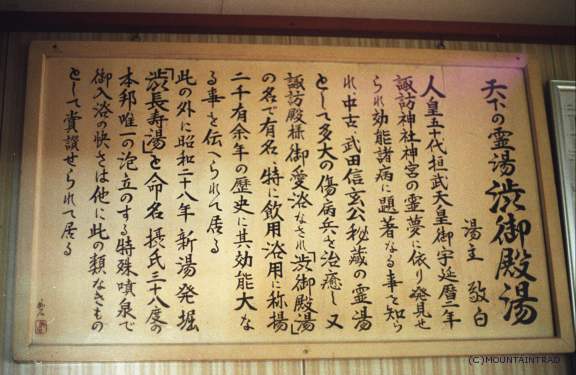 天下の霊湯 渋御殿湯
湯主 敬白
人皇五十代桓武天皇御宇延暦二年
諏訪神社神宮の霊夢に依り発見せ
られ効能諸病に題著なる事を知ら
れ、中古、武田信玄公秘蔵の霊湯
として多大の傷病兵を治癒し又
諏訪殿様御愛浴なされ「渋御殿湯」
の名で有名、特に飲用浴用に称揚
二千有余年の歴史に其効能大な
る事を伝へられて居る
此の外に昭和二十八年新湯発掘
「渋長寿湯」と命名摂氏三十八度の
本邦唯一の泡立のする特殊噴泉で
御入浴の快さは他に此の類なきもの
として賞讃せられて居る
(C)MOUNTAINTRAD